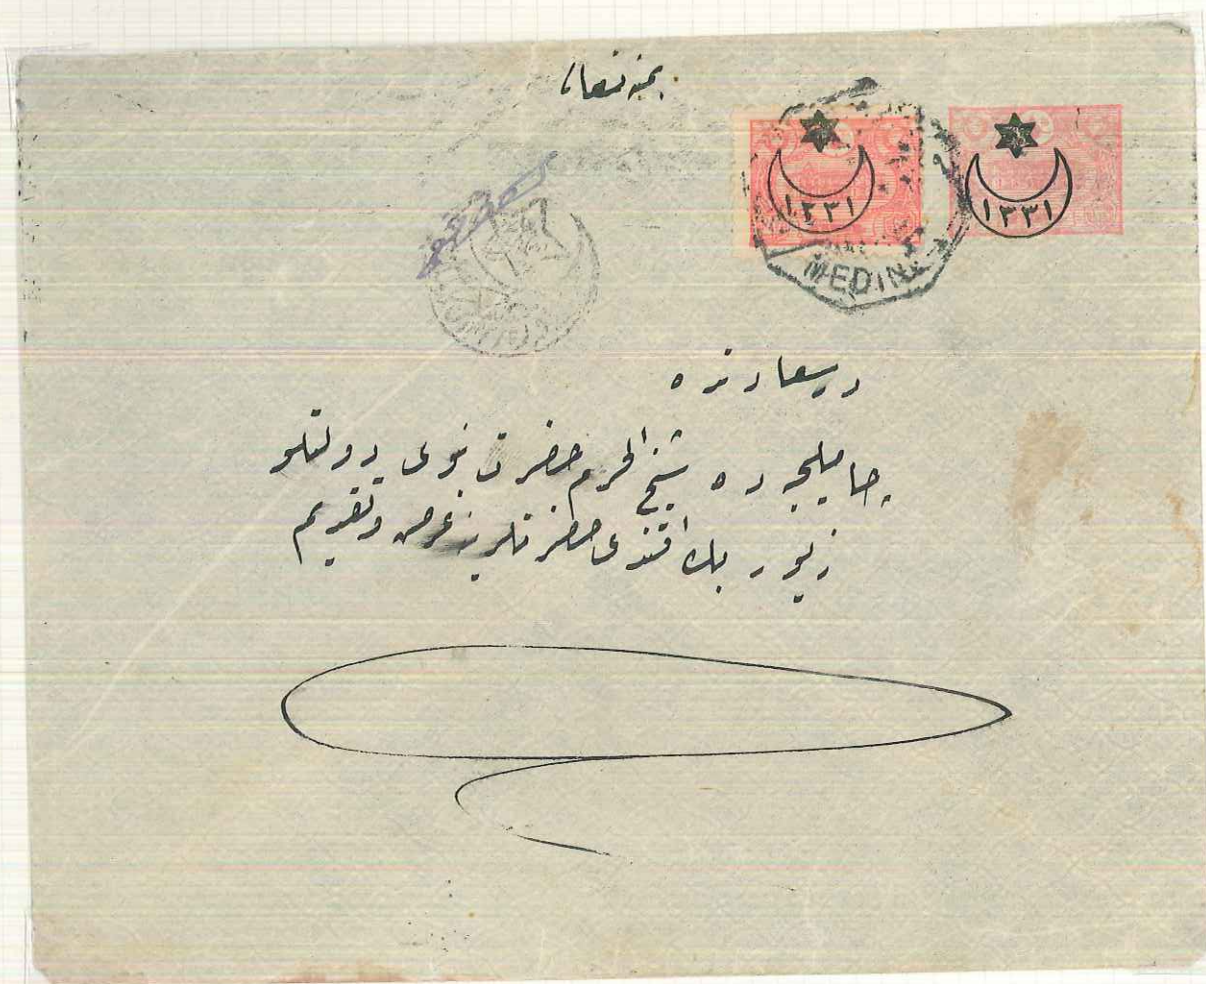 بمنه تعالى
١٣٣١
١٣٣١
MEDINE
درسعادتده
چامليجه ده شيخ الحرم حضرت نبوى دولتلو
زيور بك افندى حضرتلرينه عرض و تقديم